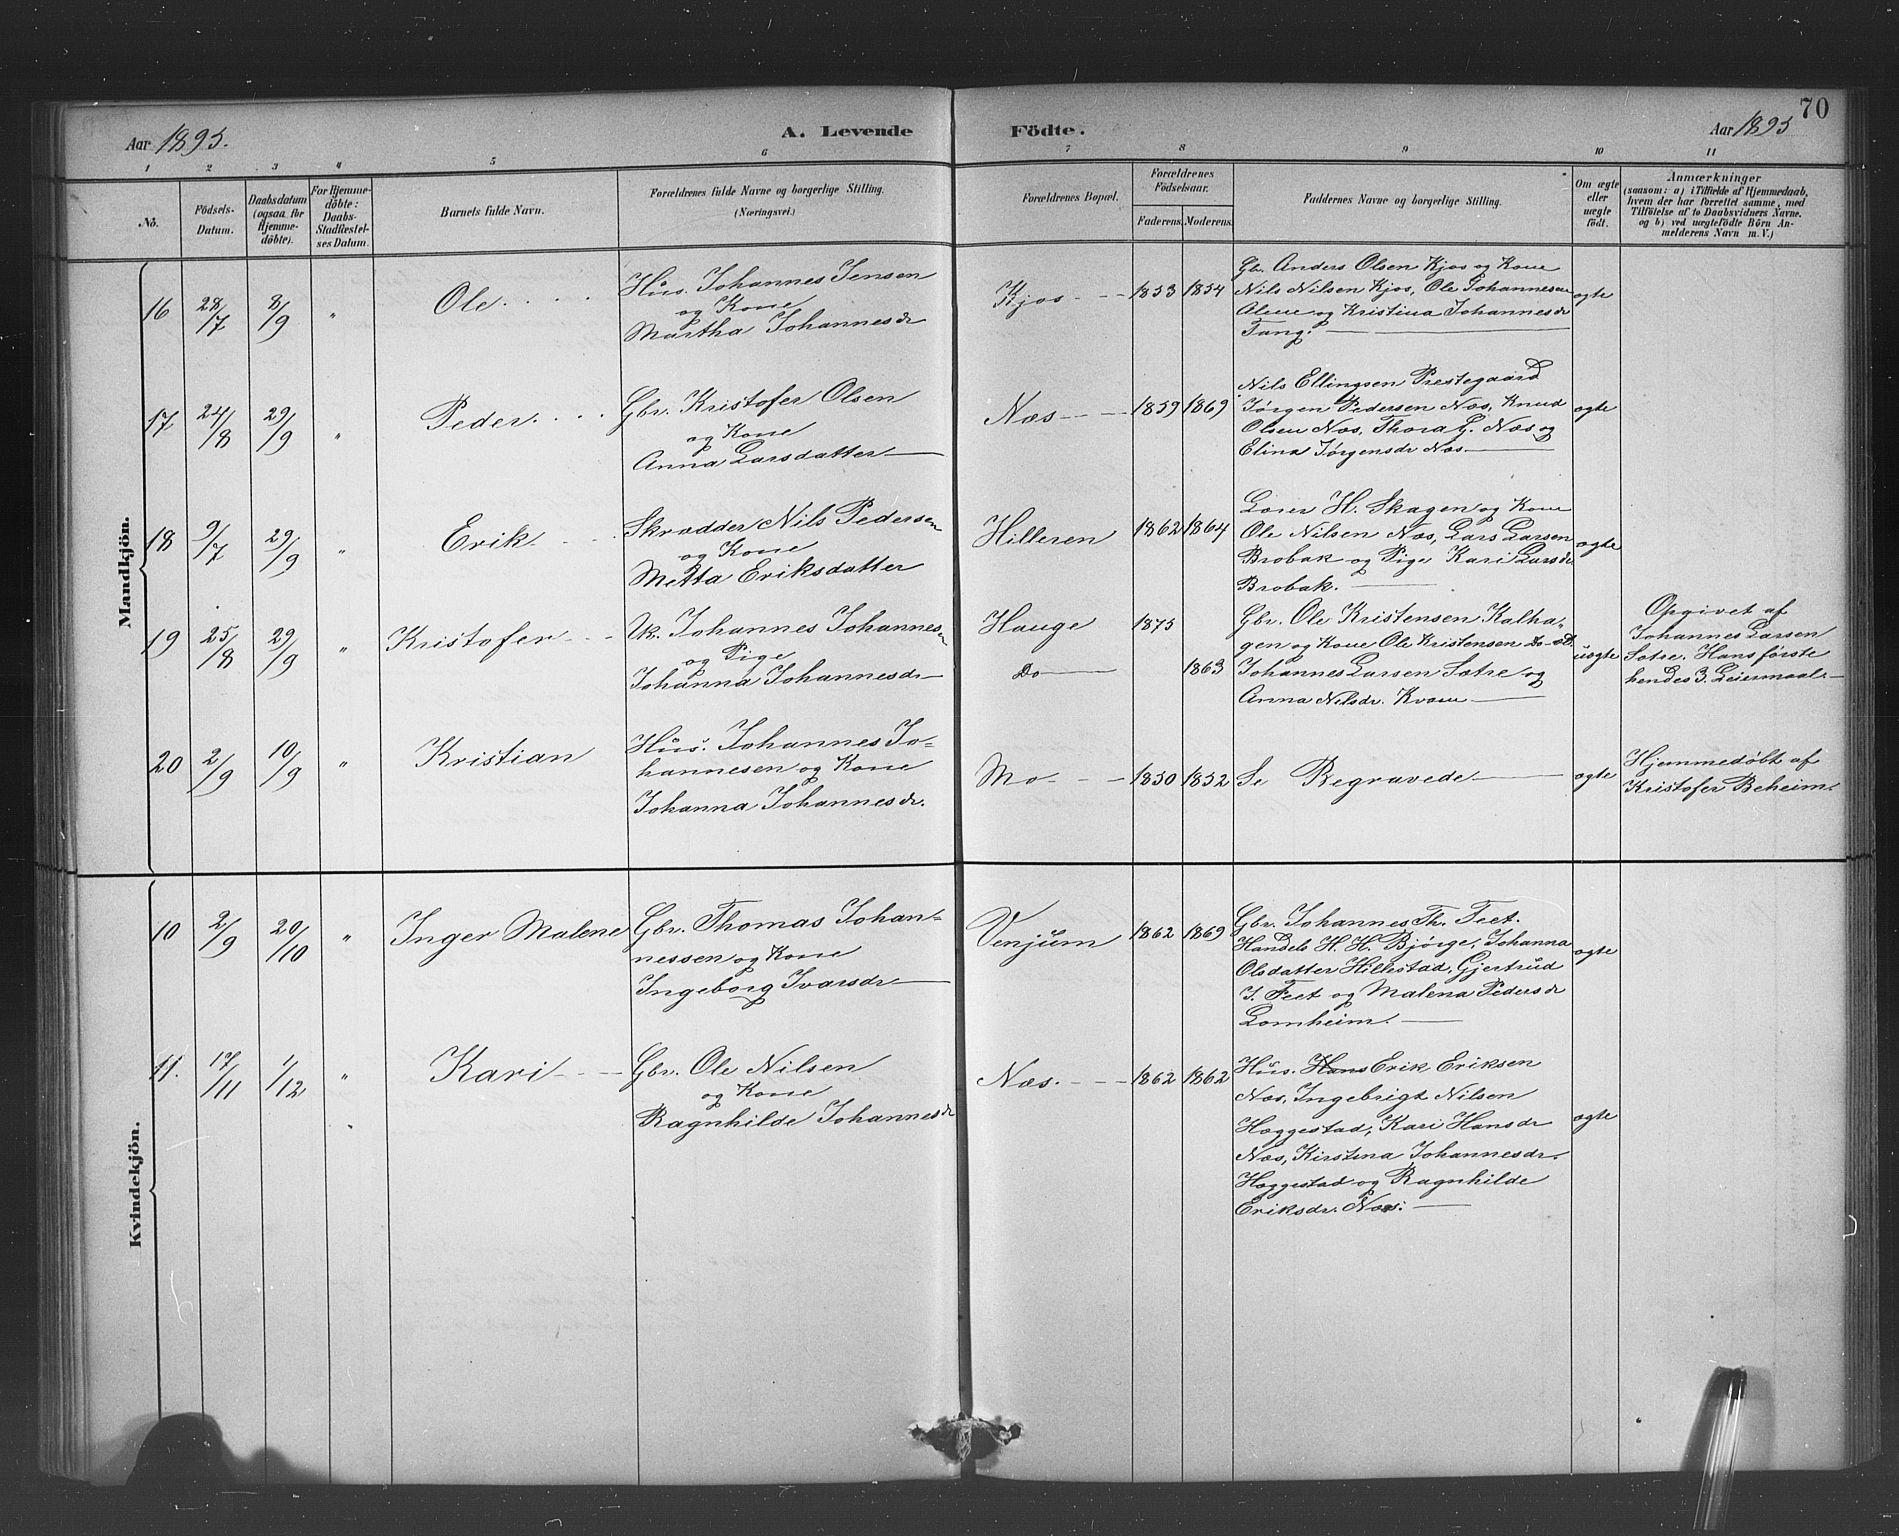 Aar 1895.
A. Levende
Födte.
Aar 1895
70
1 2 3 4 5 6 7 8 9 10 11
No.
Födsels-Datum.
Daabsdatum (ogsaa for Hjemme-döbte).
For Hjemme-döbte: Daabs-Stadfæstel-ses Datum.
Barnets fulde Navn.
Forældrenes fulde Navne og borgerlige Stilling.
(Næringsvei.)
Forældrenes Bopæl.
Forældrenes Födselsaar.
Faderens. Moderens.
Faddernes Navne og borgerlige Stilling.
Om ægte eller uægte födt.
Anmærkninger
(saasom: a) i Tilfælde af Hjemmedaab,
hvem der har forrettet samme, med
Tilföielse af to Daabsvidners Navne.
og b) ved uægtefödte Börn An-
melderens Navn m. V.)
Mandkjön.
16 28/7 8/9 " Ole
Hüs. Johannes Jensen
og Kone
Martha Johannesdr
Kjos 1853 1854
Gb. Anders Olsen Kjos og Kone
Nils Nilsen Kjos, Ole Johannesen
og Kristina Johannesdr
Tang.
ægte
17 24/8 29/9 " Peder
Gbr. Kristofer Olsen
og Kone
Anna Larsdatter
Næs 1859 1869
Nils Ellingsen Prestegaard
Jørgen Pedersen Næs, Knud
Olsen Næs, Thora G. Næs og
Elina Jørgensdr Næs
ægte
18 9/7 29/9 " Erik
Skrædder Nils Pedersen
og Kone
Metta Eriksdatter
Hilleren 1862 1864
H. Skagen og Kone
Ole Nilsen Næs, Lars Larsen
Brobak og Pige Kari Larsdr
Brobak.
ægte
19 25/8 29/9 " Kristofer
Uk. Johannes Johannesen
og Pige
Johanna Johannesdr
Hauge 1875
Do 1863
Gbr. Ole Kristensen Kalha-
gen og Kone Ole Kristensen
Johannes Larsen Sætre og
Anna Nilsdr. Kvam
uægte
Opgivet af
Johannes Larsen
Sætre. Hans første
hendes 3. Leiermaal
20 2/9 10/9 " Kristian
Hüs. Johannes Jo-
hannesen og Kone
Johanna Johannesdr.
Mo 1850 1852
Se Begravede
ægte
Hjemmedøbt af
Kristofer Beheim.
Kvindekjön.
10 2/9 20/10 " Inger Malene
Gbr. Thomas Johan-
nessen og Kone
Ingeborg Ivarsdr
Venjüm 1862 1869
Gbr. Johannes Th. Feet.
Handels H. H. Bjørge, Johanna
Olsdatter Hillestad, Gjertrud
J. Feet og Malena Pedersdr
Lomheim.
ægte
11. 17/11 1/12 " Kari
Gbr. Ole Nilsen
og Kone
Ragnhilde Johannesdr
Næs. 1862 1862
Hüs. Hans Erik Eriksen
Næs, Ingebrigt Nilsen
Hæggestad, Kari Hansdr
Næs, Kirstina Johannesdr.
Hæggestad og Ragnhilde
Eriksdr. Næs.
ægte